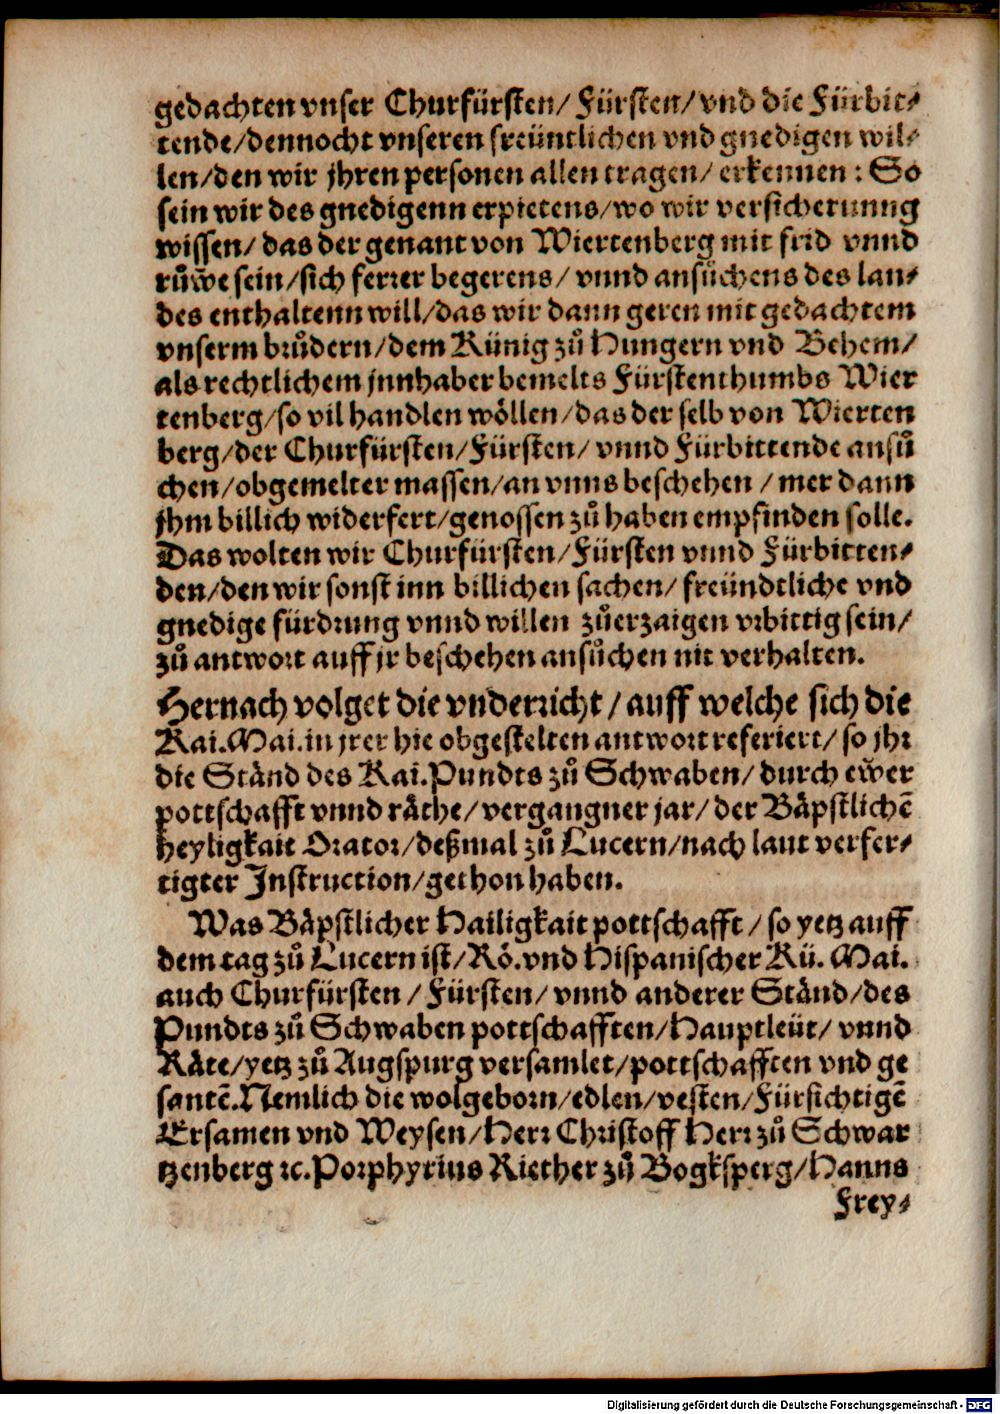 gedachten vnser Churfürsten/ Fürsten/ vnd die Fürbit⸗
tende/dennocht vnseren freüntlichen vnd gnedigen wil⸗
len/den wir jhren personen allen tragen/ erkennen: So
sein wir des gnedigenn erpietens/wo wir versicherunng
wissen/ das der genant von Wiertenberg mit frid vnnd
růwe sein/sich ferrer begerens/ vnnd ansůchens des lan⸗
des enthaltenn will/das wir dann geren mit gedachtem
vnserm brůdern/dem Künig zů Hungern vnd Behem/
als rechtlichem jnnhaber bemelts Fürstenthumbs Wier
tenberg/so vil handlen wöllen/das der selb von Wierten
berg/der Churfürsten/Fürsten/ vnnd Fürbittende ansů
chen/obgemelter massen/an vnns beschehen /mer dann
jhm billich widerfert/genossen zů haben empfinden solle.
Das wolten wir Churfürsten/Fürsten vnnd Fürbitten⸗
den/den wir sonst inn billichen sachen/ freündtliche vnd
gnedige fürdrung vnnd willen zůerzaigen vrbittig sein/
zů antwort auff jr beschehen ansůchen nit verhalten.
Hernach volget die vnderricht/ auff welche sich die
Kai.Mai.in jrer hie obgestelten antwort referiert/ so jhr
die Ständ des Kai.Pundts zů Schwaben/ durch ewer
pottschafft vnnd räthe/ vergangner jar/ der Bäpstlichē
heyligkait Orator/deßmal zů Lucern/nach laut verfer⸗
tigter Instruction/gethon haben.
Was Bäpstlicher Hailigkait pottschafft/ so yetz auff
dem tag zů Lucern ist/Rö.vnd Hispanischer Kü. Mai.
auch Churfürsten / Fürsten/ vnnd anderer Ständ/des
Pundts zů Schwaben pottschafften/Hauptleüt/ vnnd
Räte/yetz zů Augspurg versamlet/pottschafften vnd ge
santē.Nemlich die wolgeborn/edlen/vesten/Fürsichtigē
Ersamen vnd Weysen/Herr Christoff Herr zů Schwar
tzenberg ꝛc.Porphyrius Riether zů Bogksperg/Hanns
Frey⸗
Digitalisierung gefördert durch die Deutsche Forschungsgemeinschaft - DFG